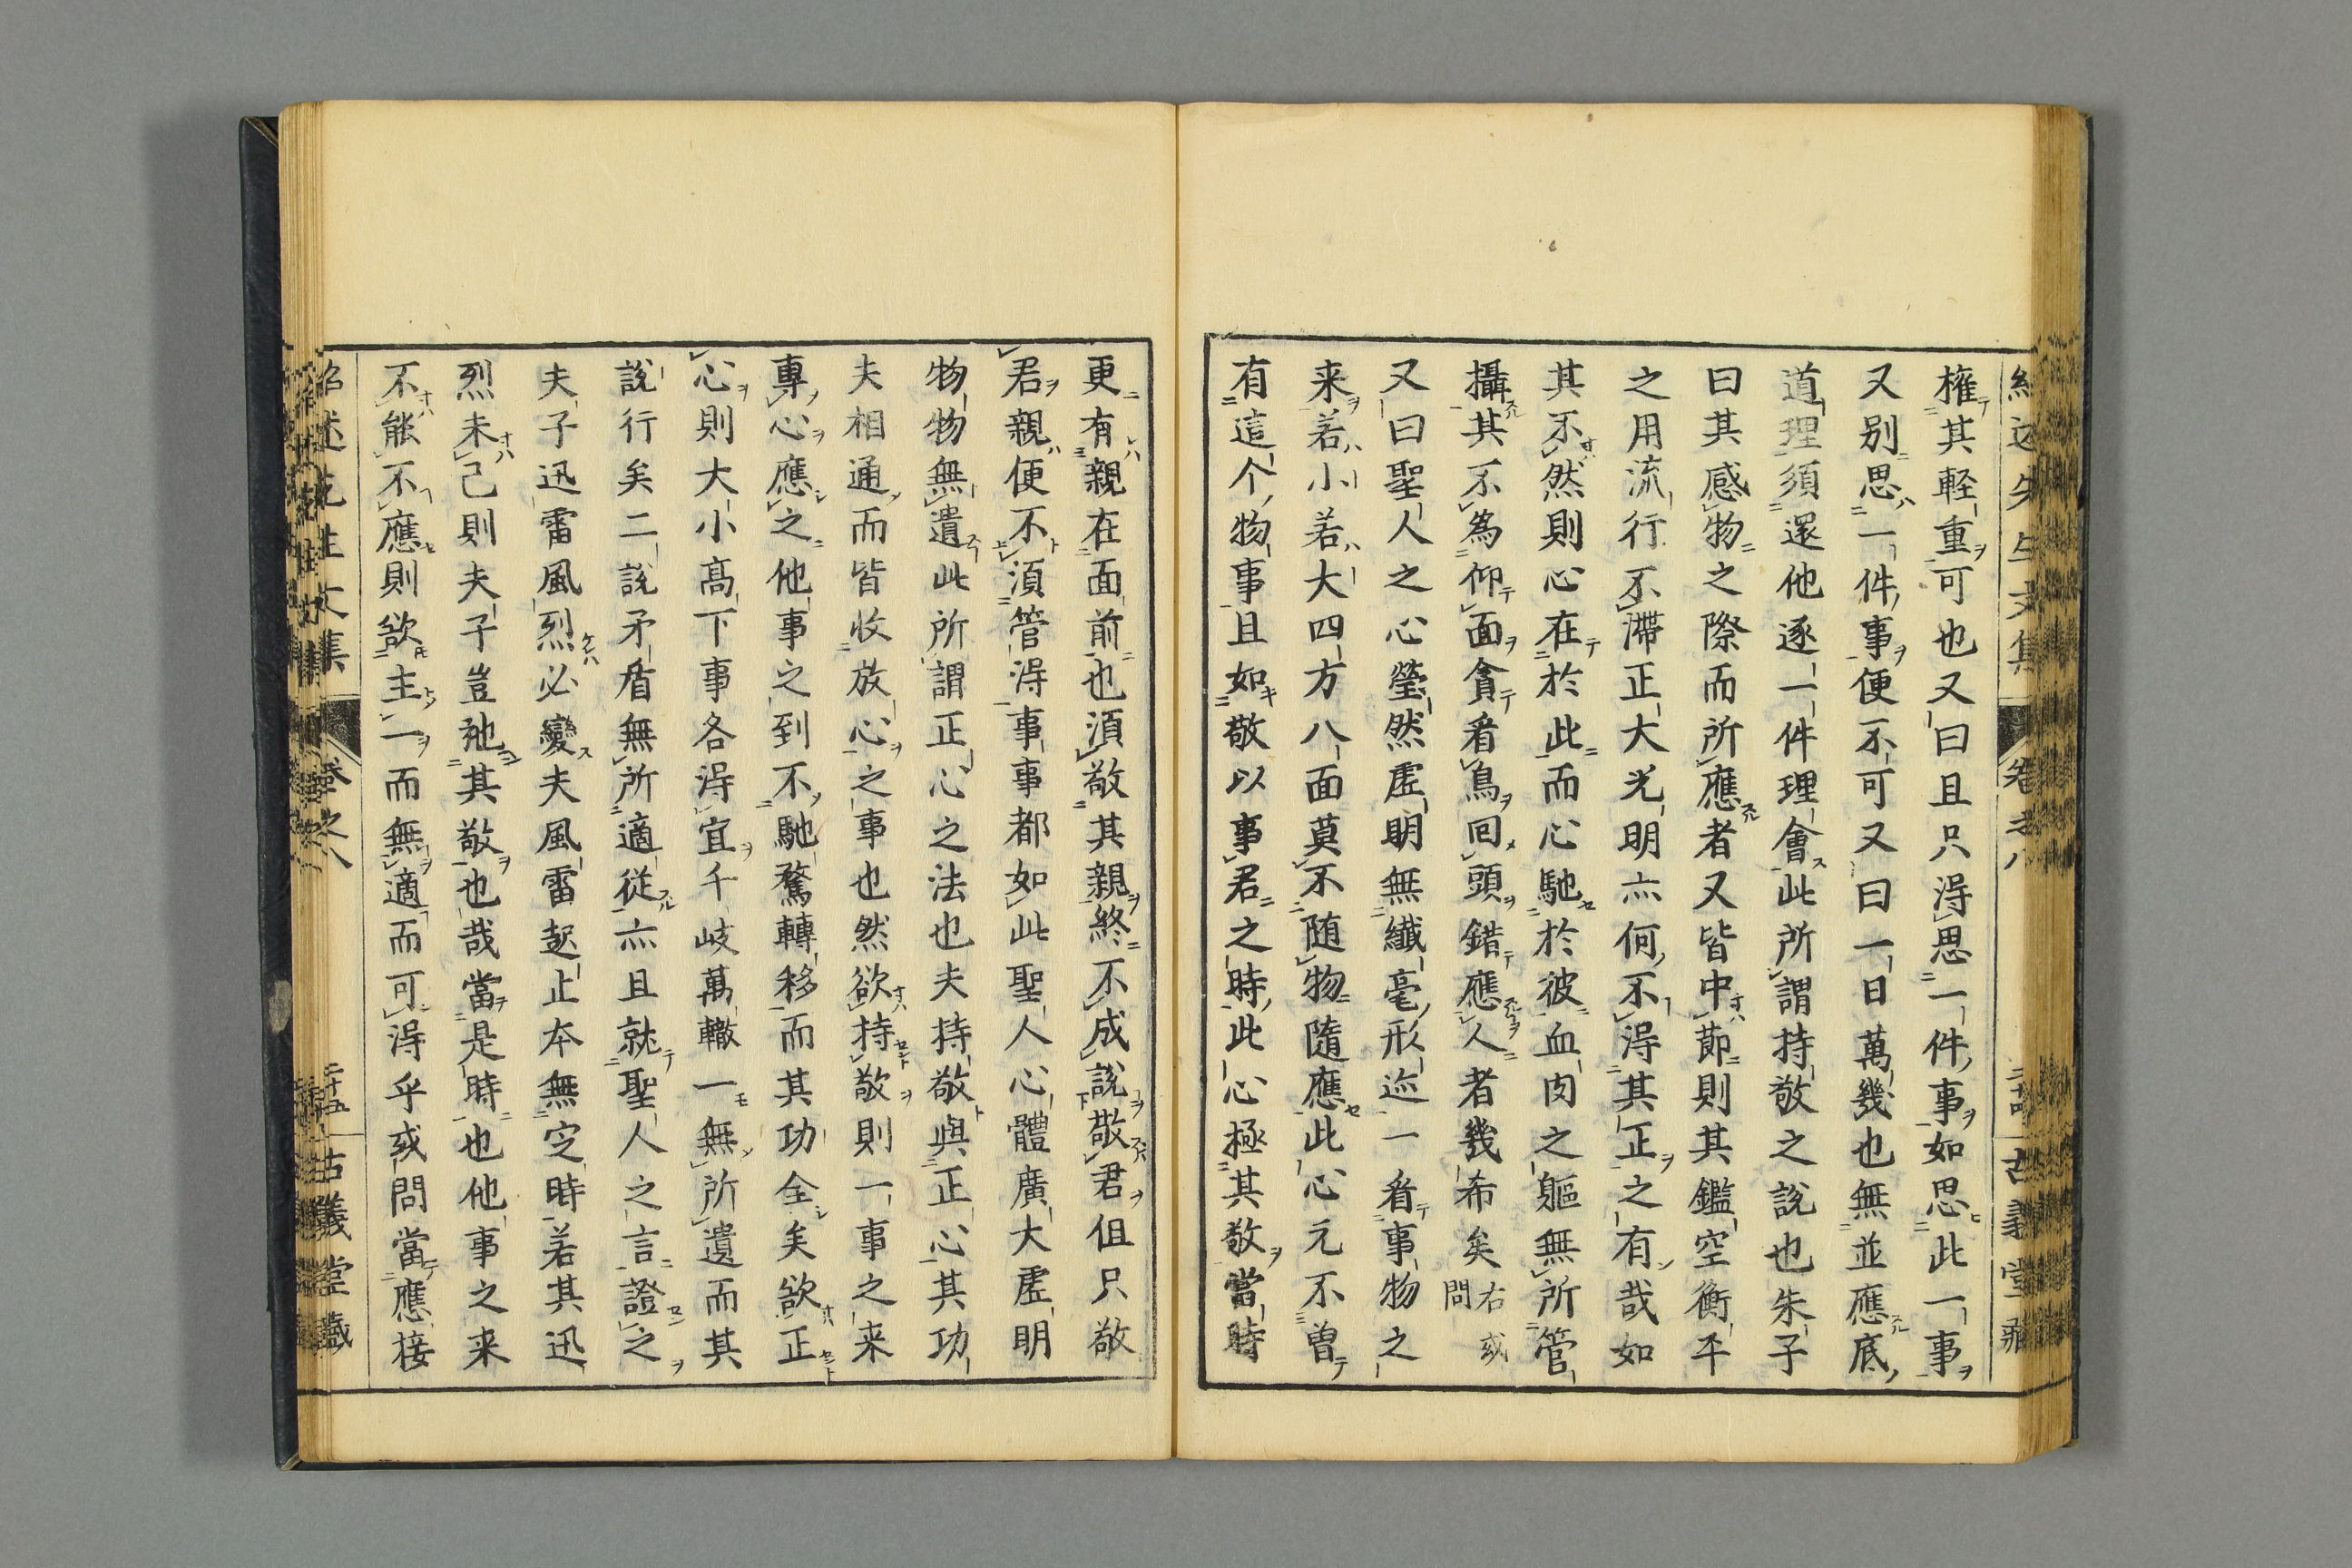 権其軽重可也又曰且只淂思一件事如思此一事
又别思一件事便不可又曰一日萬幾也無並應底
道理須還他逐一件理會此所謂持敬之説也朱子
曰其感物之際而所應者又皆中莭則其鑑空衡平
之用流行不滯正大光明亦何不淂其正之有哉如
其不然則心在於此而心馳於彼血肉之軀無所管
攝其不為仰面貪看鳥回頭錯應人者幾希矣右或問
又曰聖人之心瑩然虚明無纎毫形迹一看事物之
来若小若大四方八面莫不随物隨應此心元不曽
有這个物事且如敬以事君之時此心極其敬當時
更有親在面前也湏敬其親終不成說敬君但只敬
君親便不湏管淂事事都如此聖人心體廣大虚明
物物無遺此所謂正心之法也夫持敬與正心其功
夫相通而皆收放心之事也然欲持敬則一事之来
專心應之他事之到不馳騖轉移而其功全矣欲正
心則大小高下事各淂宜千岐萬轍一無所遺而其
説行矣二說矛盾無所適從亦且就聖人之言證之
夫子迅雷風烈必變夫風雷起止本無定時若其迅
烈未已則夫子豈弛其敬也哉當是時也他事之来
不能不應則欲主一而無適而可淂乎或問當應接
紹述先生文集 卷之八 二十五 古義堂藏